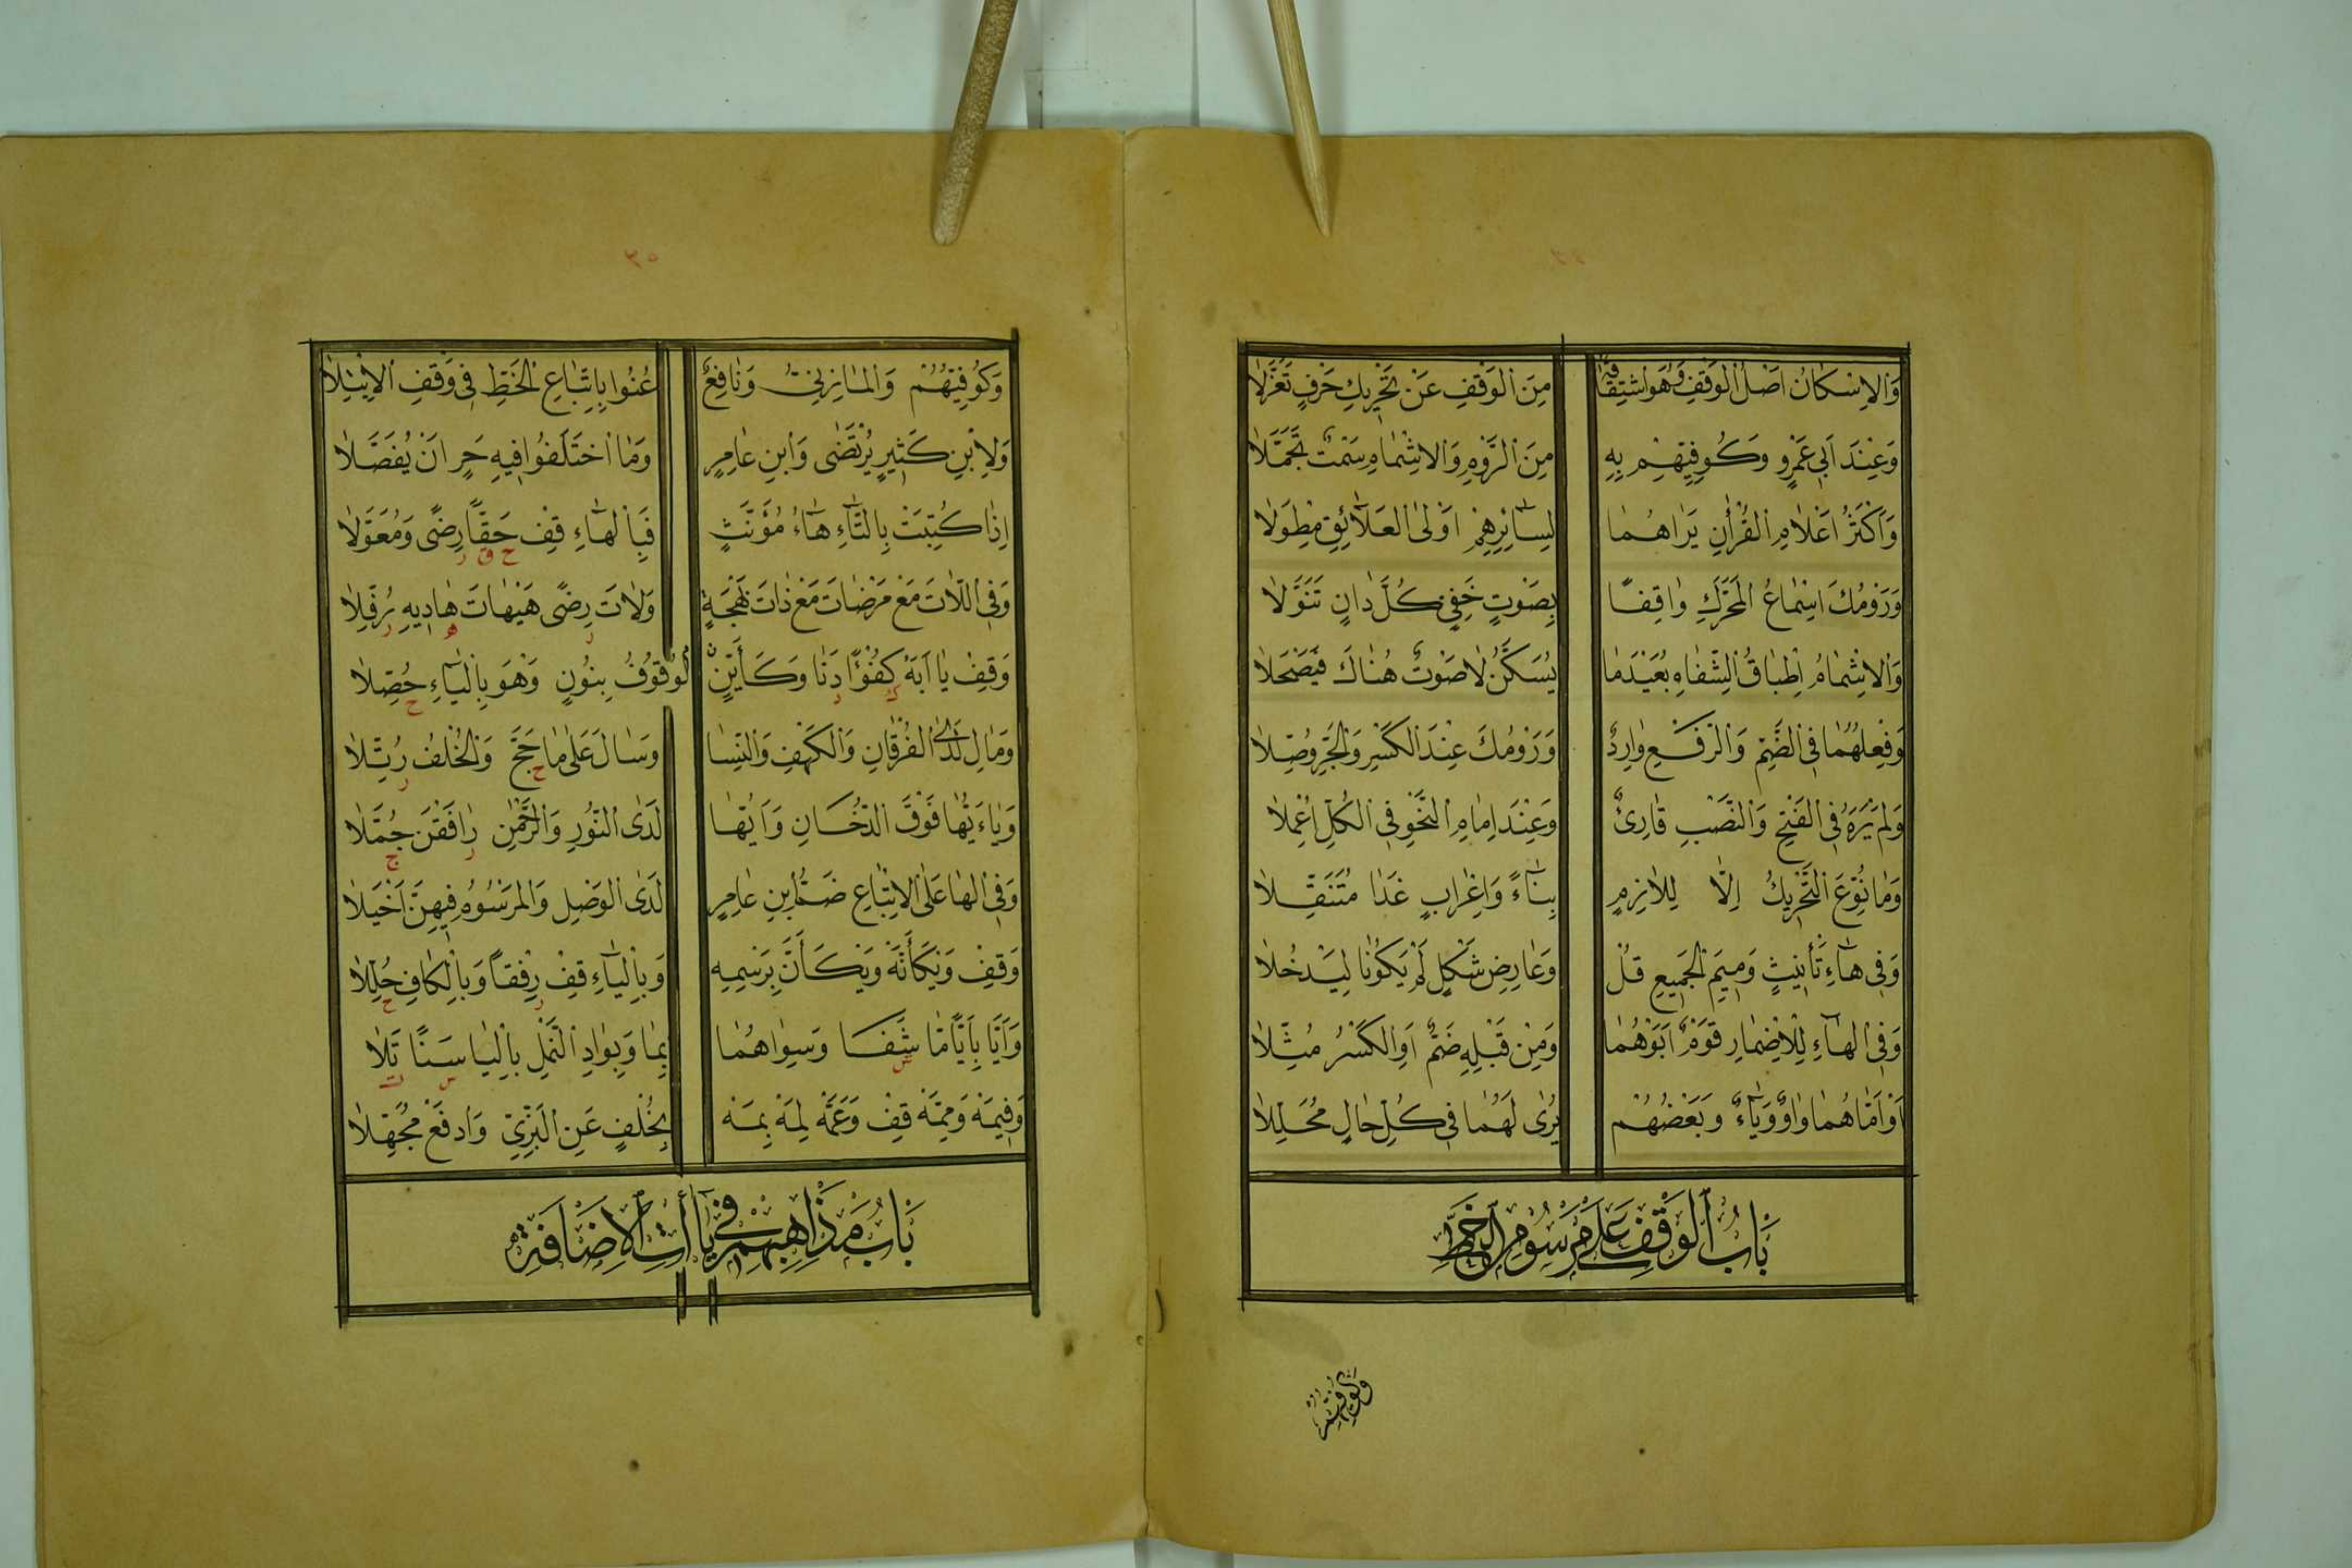 وَالاِسْكَانُ اَصْلُ الوَقْفِ وَهْوَ اشْتِقَاقُهُ مِنَ الوَقْفِ عَنْ تَحْرِيكِ حَرْفٍ تَعَزَّلَا
وَعِنْدَ اَبِى عَمْرٍو وَكُوفِيِّهِمْ بِهِ مِنَ الرَّوْمِ وَالاِشْمَامِ سَمْتٌ تَجَمَّلَا
وَاَكْثَرُ اَعْلَامِ القُرْاٰنِ يَرَاهُمَا لِسَائِرِهِمْ اَوْلَى العَلَائِقِ مِطْوَلَا
وَرَوْمُكَ اِسْمَاعُ المُحَرَّكِ وَاقِفًا بِصَوْتٍ خَفِىٍّ كُلَّ دَانٍ تَنَوَّلَا
وَالاِشْمَامُ اِطْبَاقُ الشِّفَاهِ بُعَيْدَمَا يُسَكَّنُ لَاصَوْتٌ هُنَاكَ فَيَصْحَلَا
وَفِعْلُهُمَا فِى الضَّمِّ وَالرَّفْعِ وَارِدٌ وَرَوْمُكَ عِنْدَ الكَسْرِ وَالجَرِّ وُصِّلَا
وَلَمْ يَرَهُ فِى الفَتْحِ وَالنَّصْبِ قَارِئٌ وَعِنْدَ اِمَامِ النَّحْوِ فِى الكُلِّ اُعْمِلَا
وَمَا نُوِّعَ التَّحْرِيكُ اِلَّا لِلَازِمٍ بِنَاءً وَاِعْرَابٍ غَدَا مُتَنَقِّلَا
وَفِى هَاءِ تَأْنِيثٍ وَمِيمِ الجَمِيعِ قُلْ وَعَارِضِ شَكْلٍ لَمْ يَكُونَا لِيَدْخُلَا
وَفِى الهَاءِ لِلْاِضْمَارِ قَوْمٌ اَبَوْهُمَا وَمِنْ قَبْلِهِ ضَمٌّ اَوِ الكَسْرُ مُثِّلَا
اَوْ اَمَّاهُمَا وَاوٌ وَيَاءٌ وَبَعْضُهُمْ يُرٰى لَهُمَا فِى كُلِّ حَالٍ مُحَلِّلَا
بَابُ الوَقْفِ عَلَى مَرْسُومِ الخَطِّ
وَكُوفِيُّهُمْ
٣٥
وَكُوفِيُّهُمْ وَالمَازِنِىُّ وَنَافِعٌ عُنُوا بِاتِّبَاعِ الخَطِّ فِى وَقْفِ الاِبْتِلَا
وَلِابْنِ كَثِيرٍ يُرْتَضٰى وَابْنِ عَامِرٍ وَمَا اخْتَلَفُوا فِيهِ حَرٍ اَنْ يُفَصَّلَا
اِذَا كُتِبَتْ بِالتَّاءِ هَاءُ مُؤَنَّثٍ فَبِالهَاءِ قِفْ حَقًّا رِضًى وَمُعَوَّلَا
ح ق ر
وَفِى اللَّاتَ مَعْ مَرْضَاتَ مَعْ ذَاتَ بَهْجَةٍ وَلَاتَ رِضًى هَيْهَاتَ هَادِيهِ رُفِّلَا
ر ه ر
وَقِفْ يَا اَبَهْ كُفْؤًا دَنَا وَكَأَيِّنْ الوُقُوفُ بِنُونٍ وَهْوَ بِاليَاءِ حُصِّلَا
ك د ح
وَمَالِ لَدَى الفُرْقَانِ وَالكَهْفِ وَالنِّسَا وَسَالَ عَلَى مَا حَجَّ وَالخُلْفُ رُتِّلَا
ح ر
وَيَاءَيُّهَا فَوْقَ الدُّخَانِ وَاَيُّهَا لَدَى النُّورِ وَالرَّحْمٰنِ رَافَقْنَ حُمَّلَا
ر ح
وَفِى الهَا عَلَى الاِتْبَاعِ ضَمَّ ابْنُ عَامِرٍ لَدَى الوَصْلِ وَالمَرْسُومُ فِيهِنَّ اَخْيَلَا
وَقِفْ وَيْكَأَنَّهْ وَيْكَأَنَّ بِرَسْمِهِ وَبِاليَاءِ قِفْ رِفْقًا وَبِالكَافِ حُلِّلَا
ر ح
وَاَيًّا بِاَيًّا مَّا شَفَا وَسِوَاهُمَا بِمَا وَبِوَادِ النَّمْلِ بِاليَا سَنًا تَلَا
ش س ت
وَفِيمَهْ وَمِمَّهْ قِفْ وَعَمَّهْ لِمَهْ بِمَهْ بِخُلْفٍ عَنِ البَزِّىِّ وَادْفَعْ مُجَهِّلَا
بَابُ مَذَاهِبِهِمْ فِى يَاأَتِ الاِضَافَةِ